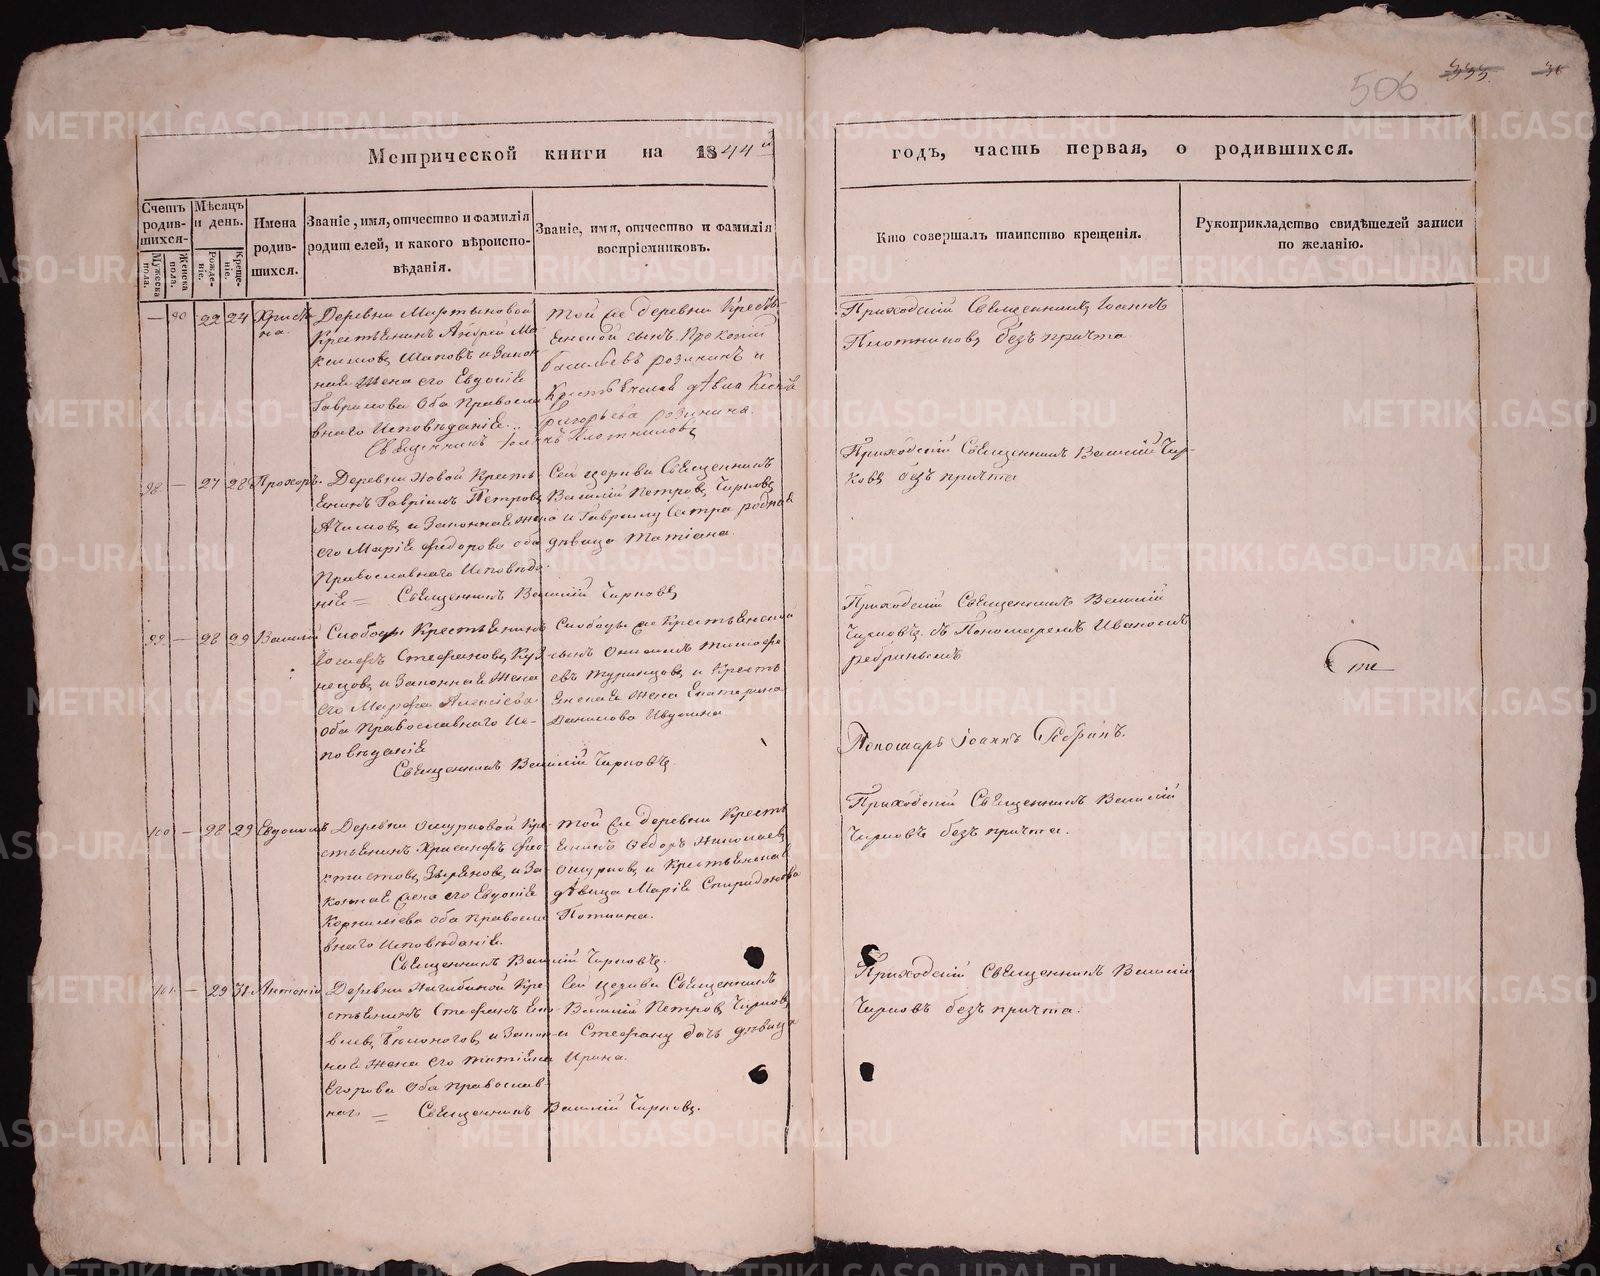 506
Метрической книги на 1844й
годъ, часть первая, о родившихся.
Счетъ родив-шихся.
Мужеска пола.
Женска пола.
Мѣсяцъ и день.
Рожде-нія.
Креще-нія.
Имена родив-шихся.
Званіе, имя, отчество и фамилія
родителей, и какого вѣроиспо-
вѣданія.
Званіе, имя, отчество и фамилія
воспріемниковъ.
Кто совершалъ таинство крещенія.
Рукоприкладство свидѣтелей записи
по желанію.
— 90 22 24 Христи
на.
Деревни Мартыновой
Крестьянинъ Андрей Ма-
ксимовъ Шаповъ и закон
ная жена его Евдокія
Гаврилова оба Правосла
внаго Исповѣданія.
Священникъ Іоаннъ Плотниковъ
той же деревни Кресть-
янской сынъ Прокопій
Васильевъ и
Крестьянская дѣвица
Григорьева
Приходскій Священникъ Іоаннъ
Плотниковъ безъ причта.
98 — 27 28 Прохоръ
Деревни Новой Кресть
янинъ Гавріилъ Петровъ
и Законная жена
его Марія Федорова оба
Православнаго Исповѣда-
нія = Священникъ Василій Чирковъ
Сей церкви Священникъ
Василій Петровъ Чирковъ
и Гавриилу сестра родная
дѣвица Татіана.
Приходскій Священникъ Василій Чир-
ковъ безъ причта
99 — 28 29 Василій
Слободы Крестьянинъ
Іосифъ Стефановъ Куз-
нецовъ и Законная жена
его Марфа Алексѣева
оба Православнаго Ис-
повѣданія
Священникъ Василій Чирковъ.
Слободы же Крестьянской
сынъ Тимофе
евъ Туринцовъ и Кресть
янская жена Екатерина
Данилова Ивукина
Приходскій Священникъ Василій
Чирковъ съ Пономаремъ Иваномъ
Пономарь Іоаннъ
100 — 28 29 Евдокимъ
Деревни Ошурковой Кре-
стьянинъ Хрисанфъ Фео-
ктистовъ Зыряновъ и За-
конная жена его Евдокія
Корнильева оба Правосла
внаго Исповѣданія.
Священникъ Василій Чирковъ.
той же деревни Кресть
янинъ Федоръ Николаевъ
Ошурковъ и Крестьянская
дѣвица Марія Спиридонова
Приходскій Священникъ Василій
Чирковъ безъ причта.
101. — 29 31 Антоній
Деревни Нагибиной Кре-
стьянинъ Стефанъ
Бѣлоноговъ и Закон-
ная жена его Татіана
Егорова Оба Православ-
наго = Священникъ Василій Чирковъ.
Сей церкви Священникъ
Василій Петровъ Чирковъ
и Стефану дочь дѣвица
Ирина.
Приходскій Священникъ Василій
Чирковъ безъ причта.